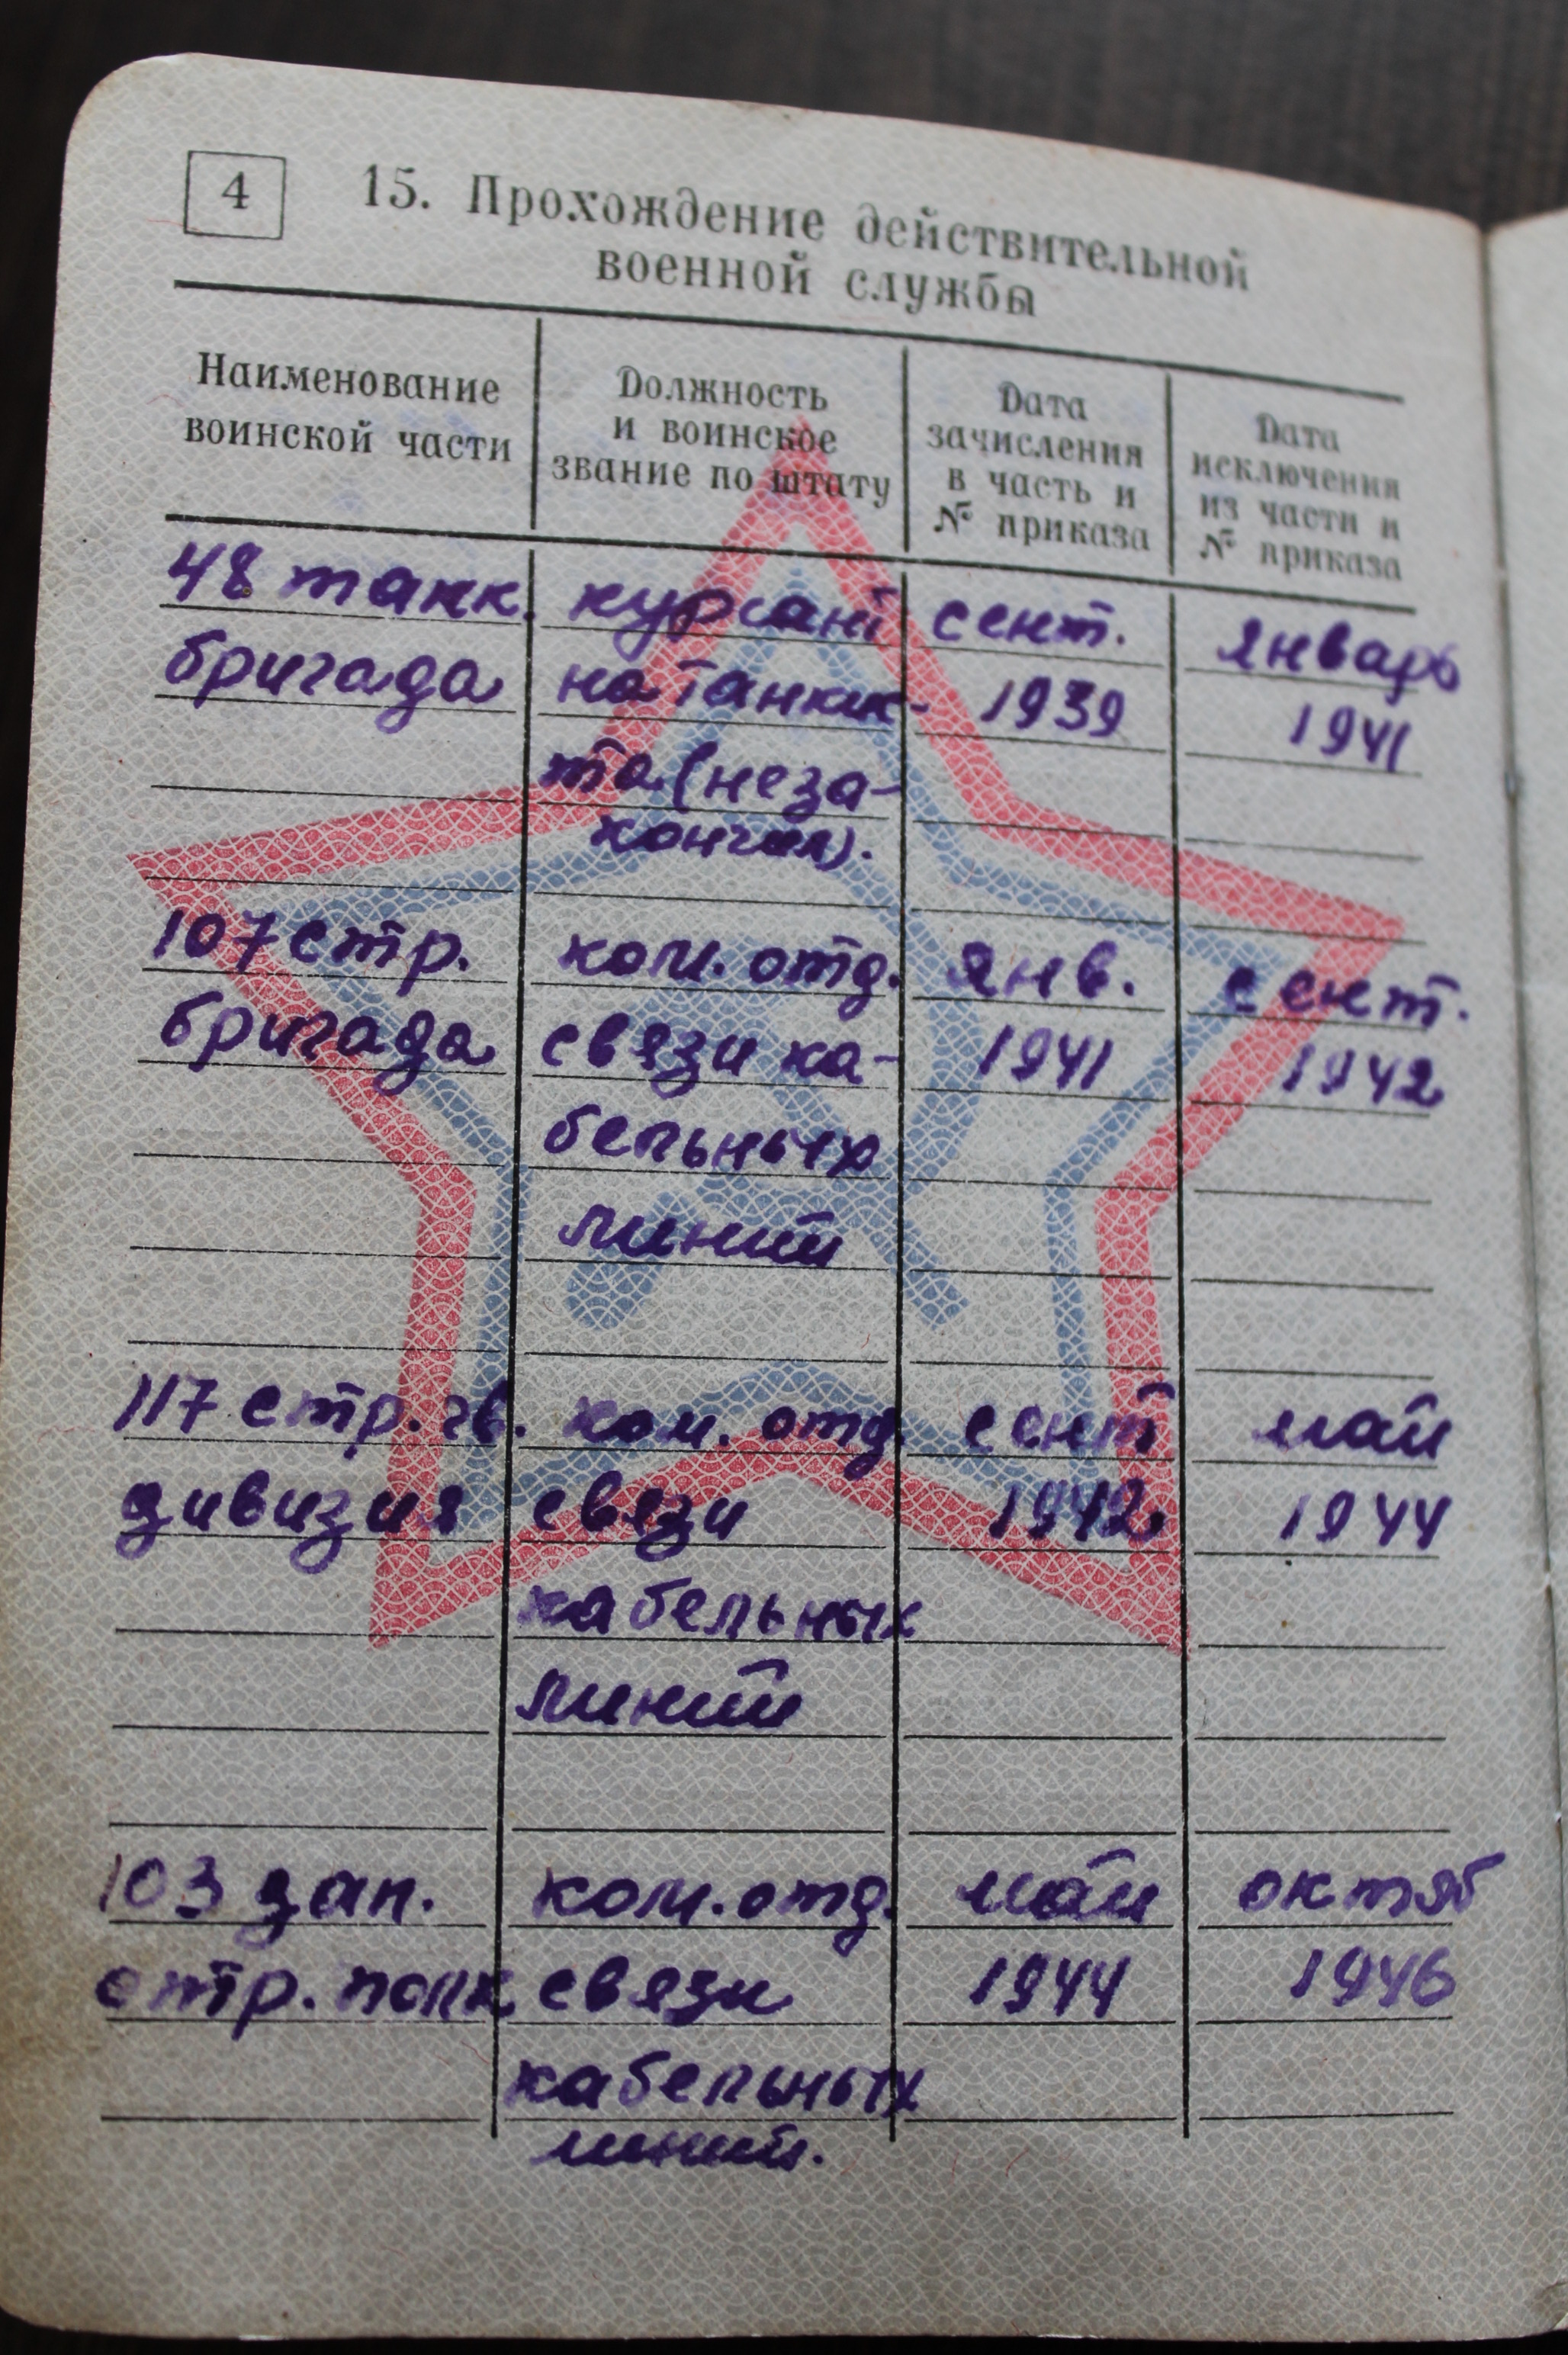 4
15. Прохождение действительной
военной службы
Наименование
воинской части
Должность
и воинское
звание по штату
Дата
зачисления
в часть и
№ приказа
Дата
исключения
из части и
№ приказа
48 танк. курсант сент. январь
бригада на танкис- 1939 1941
та (неза-
кончил).
107 стр. ком. отд. янв. сент.
бригада связи ка- 1941 1942
бельных
линий
117 стр. гв. ком. отд. сент май
дивизия связи 1942 1944
кабельных
линий
103 зап. ком. отд. май октяб
стр. полк связи 1944 1946
кабельных
линий.